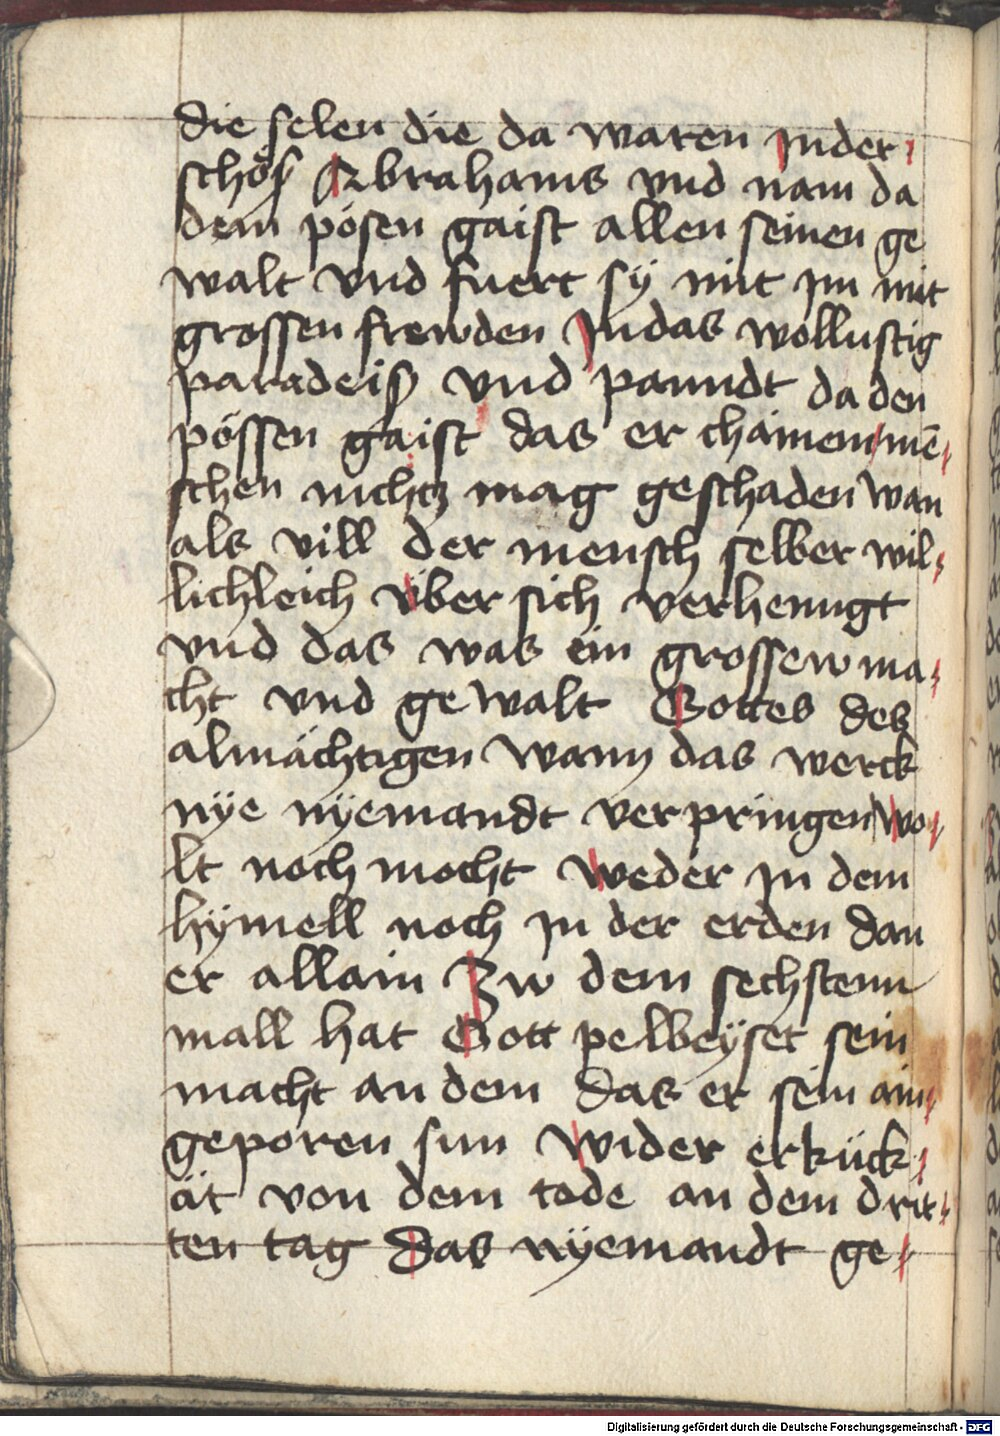 die selen die da waren jn der
schös Abrahams vnd nam da
dem pösen gaist allen seinen ge
walt vnd fuert sÿ mit jm mit
grossen frewden Jn das wollustig
paradeiss vnd panndt da den
pössen gaist das er chainem men
schen nichtz mag geschaden wan
als vill der mensch selber wil
lichleich über sich verhenngt
vnd das was ein grossew ma
cht vnd gewalt Gottes des
almächtigen wann das werck
nÿe nÿemandt verpringen wo
lt noch mocht weder jn dem
hÿmell noch jn der erden dan
er allain Zw dem sechstenn
mall hat Gott pelbeÿset sein
macht an dem das er sein ain
geporen sun wider erkück
ät von dem tode an dem drit
ten tag Das nÿemandt ge
Digitalisierung gefördert durch die Deutsche Forschungsgemeinschaft - DFG